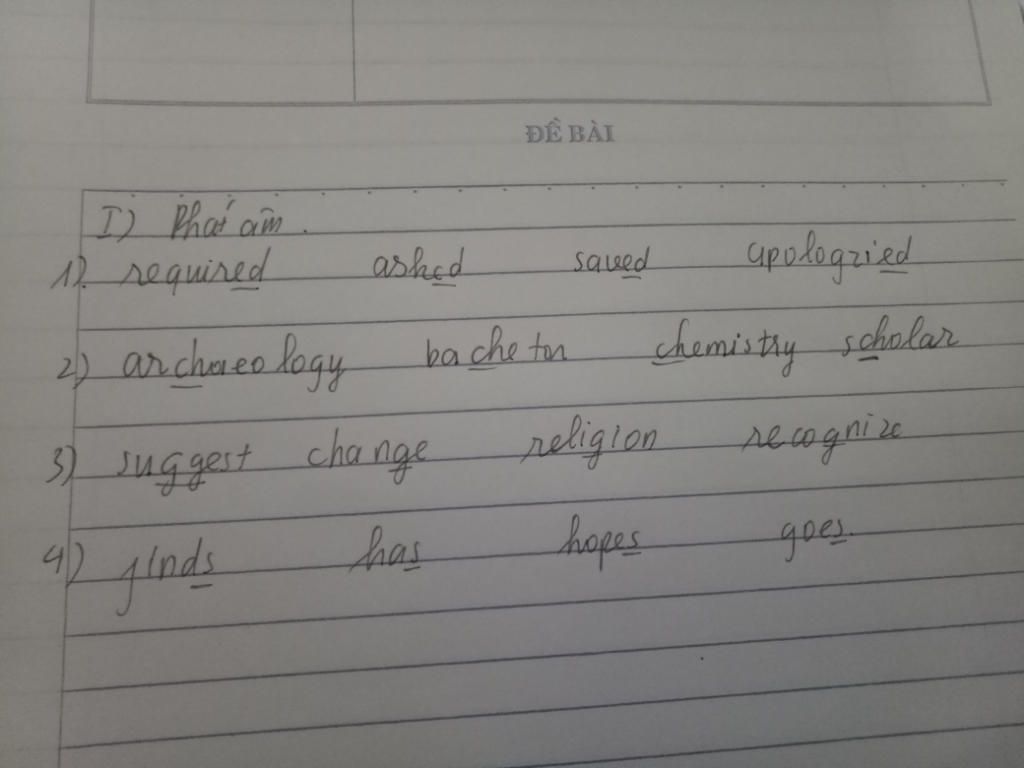 ĐỀ BÀI
I) Phát âm.
1). required asked saved apologzied
2) archaeology bachelor chemistry scholar
3) suggest change religion recognize
4) finds has hopes goes.